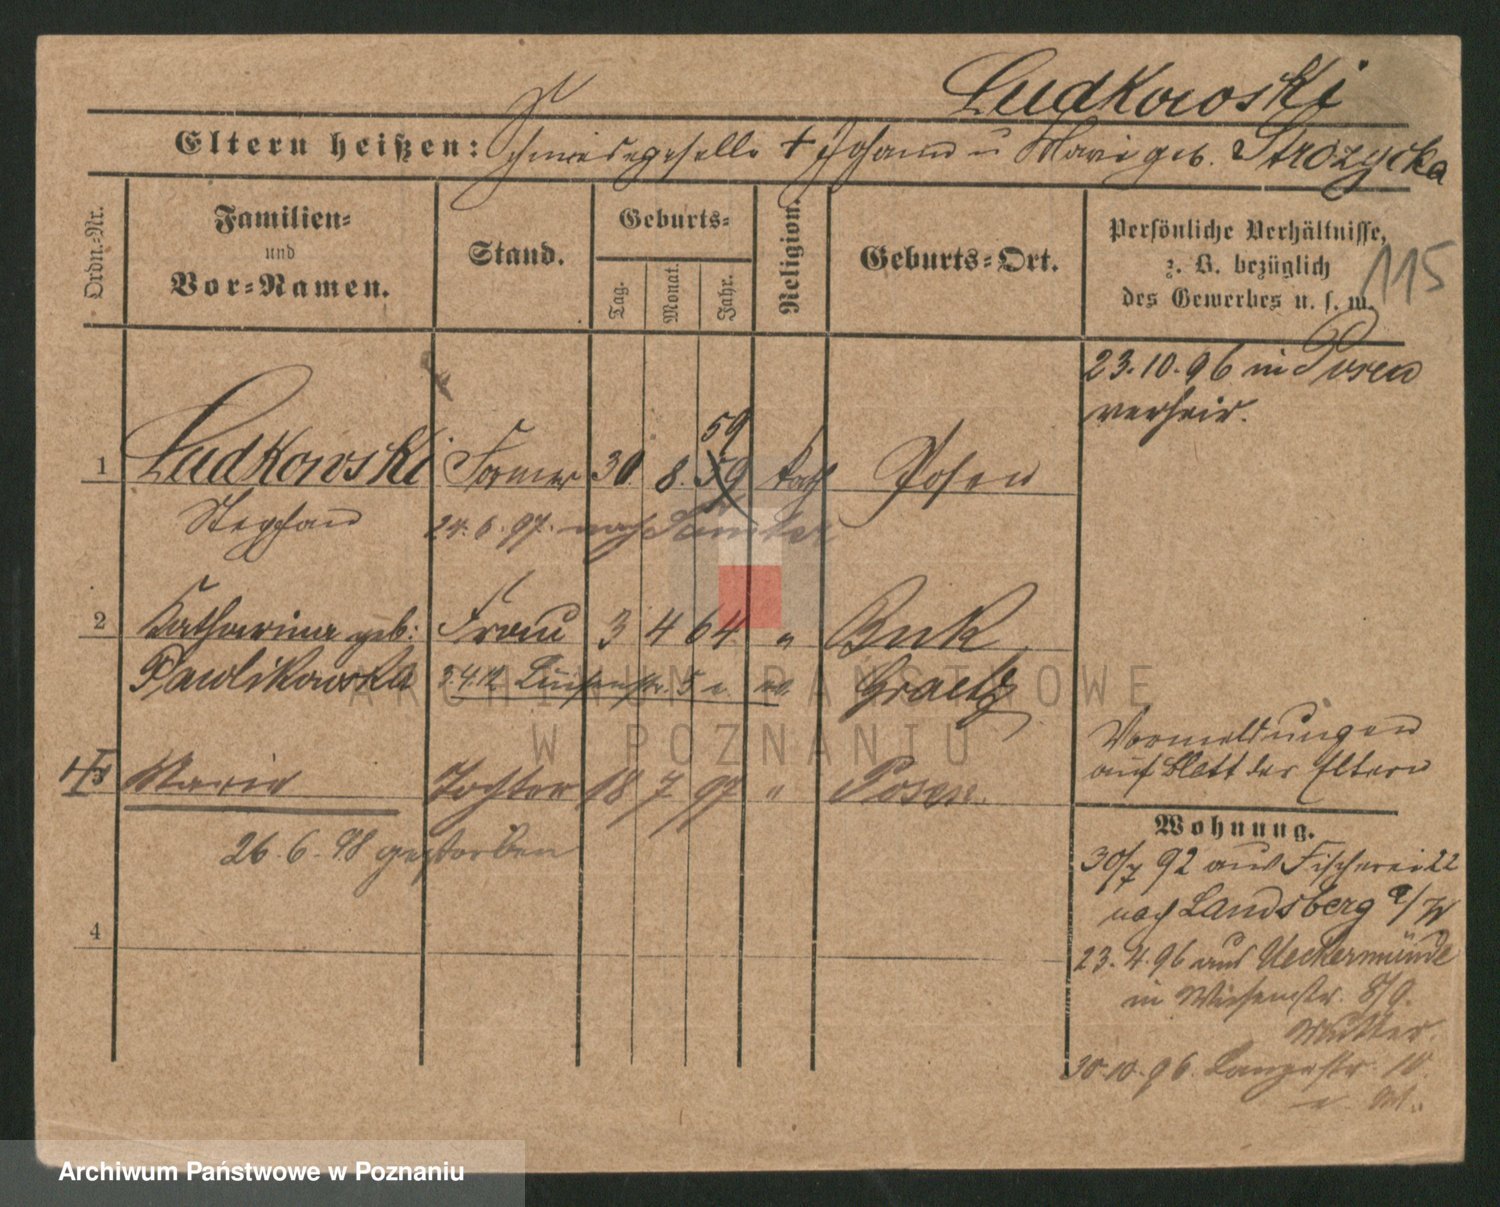 Ludkowski
Eltern heißen: Schmiedegeselle + Johann u Marie geb. Strozycka
Ordn.-Nr.
Familien-
und
Vor-Namen.
Stand.
Geburts-
Tag.
Monat.
Jahr.
Religion.
Geburts-Ort.
Persönliche Verhältnisse,
z. B. bezüglich
des Gewerbes u. s. w.
115
23.10.96 in Posen
verheir.
59
1 Ludkowski Former 30. 8. 59 kath Posen
Stephan 24.6.97. nach Samter
2 Katharina geb: Frau 3 4 64 " Buk
Pawlikowska Luisenstr. 5 Graetz
3 Marie Tochter 18 7 97 " Posen.
26.6.98 gestorben
4
Vormeldungen
auf Blatt der Eltern
Wohnung.
30/7 92 aus Fischerei 22
nach Landsberg a/W
23.4.96 aus Ueckermünde
in Wiesenstr. 8/9.
Mutter.
30.10.96. Langestr. 10.
ARCHIWUM PAŃSTWOWE
W POZNANIU
Archiwum Państwowe w Poznaniu